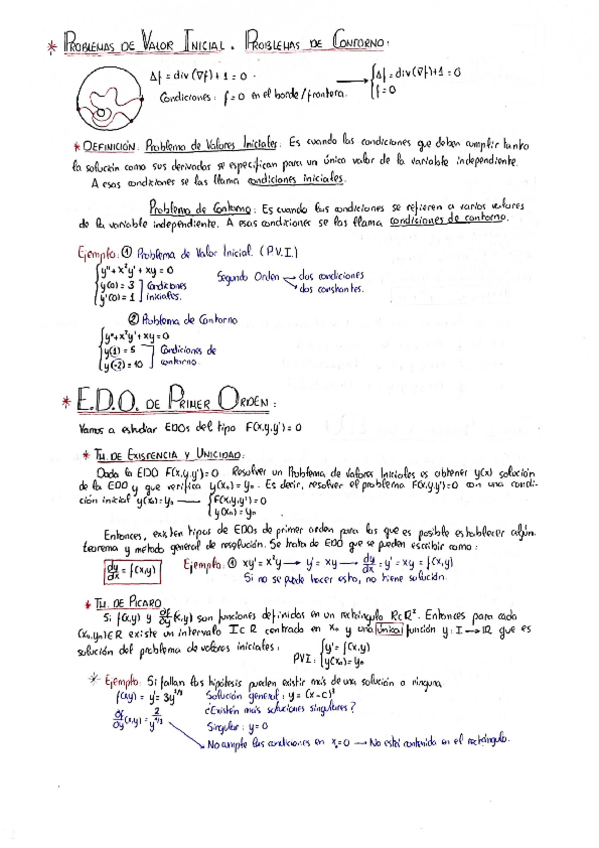 * PROBLEMAS DE VALOR INICIAL. PROBLEMAS DE CONTORNO:
Δf = div(∇f)+1 = 0.
Condiciones: f=0 en el borde/frontera.
{Δf = div(∇f)+1 = 0
f=0
* DEFINICIÓN: Problema de Valores Iniciales: Es cuando las condiciones que deban cumplir tanto
la solución como sus derivadas se especifican para un único valor de la variable independiente.
A esas condiciones se las llama condiciones iniciales.
Problema de Contorno: Es cuando las condiciones se refieren a varios valores
de la variable independiente. A esas condiciones se las llama condiciones de contorno.
Ejemplo: ① Problema de Valor Inicial. (P.V.I.)
{y''+x²y'+xy=0
y(0)=3
y'(0)=1
Condiciones
iniciales.
Segundo Orden → dos condiciones
→ dos constantes.
② Problema de Contorno
{y''+x²y'+xy=0
y(1)=5
y(-2)=10
Condiciones de
contorno.
* E.D.O. DE PRIMER ORDEN:
Vamos a estudiar EDOs del tipo F(x,y,y')=0
* TH. DE EXISTENCIA Y UNICIDAD:
Dada la EDO F(x,y,y')=0 Resolver un Problema de Valores Iniciales es obtener y(x) solución
de la EDO y que verifica y(x₀)=y₀. Es decir, resolver el problema F(x,y,y')=0 con una condi-
ción inicial y(x₀)=y₀ → {F(x,y,y')=0
y(x₀)=y₀
Entonces, existen tipos de EDOs de primer orden para los que es posible establecer algún
teorema y método general de resolución. Se trata de EDO que se pueden escribir como:
dy/dx = f(x,y)
Ejemplo: ① xy'=x²y → y'=xy → dy/dx = y' = xy = f(x,y)
Si no se puede hacer esto, no tiene solución.
* TH. DE PICARD
Si f(x,y) y ∂f/∂y(x,y) son funciones definidas en un rectángulo R⊂ℝ². Entonces para cada
(x₀,y₀)∈R existe un intervalo I⊂ℝ centrado en x₀ y una única función y: I → ℝ que es
solución del problema de valores iniciales:
PVI: {y'=f(x,y)
y(x₀)=y₀
* Ejemplo: Si fallan las hipótesis pueden existir más de una solución o ninguna
f(x,y) = y' = 3y^2/3
∂f/∂y(x,y) = 2/y^1/3
Solución general: y=(x-c)³
¿Existen más soluciones singulares?
Singular: y=0
No cumple las condiciones en x₀=0 → No está contenida en el rectángulo.